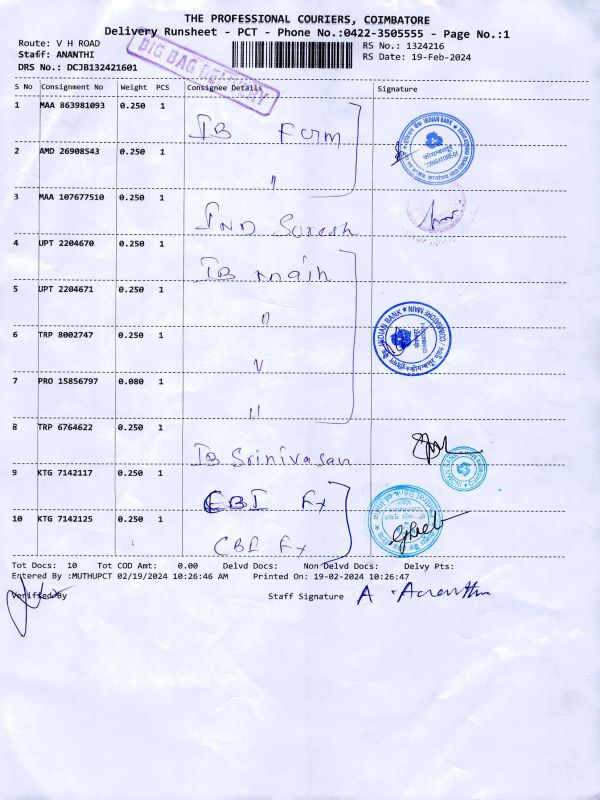 THE PROFESSIONAL COURIERS, COIMBATORE
Delivery Runsheet - PCT - Phone No.:0422-3505555 - Page No.:1
Route: V H ROAD
RS No.: 1324216
Staff: ANANTHI
RS Date: 19-Feb-2024
DRS No.: DCJB132421601
BIG BAG DELIVERY
S No Consignment No Weight PCS Consignee Details Signature
1 MAA 863981093 0.250 1 IB
INDIAN BANK
2 AMD 26908543 0.250 1 "
3 MAA 107677510 0.250 1 IND Suresh
4 UPT 2204670 0.250 1 IB main
5 UPT 2204671 0.250 1 "
6 TRP 8002747 0.250 1 "
INDIAN BANK
COIMBATORE MAIN
7 PRO 15856797 0.080 1 "
8 TRP 6764622 0.250 1 IB Srinivasan
9 KTG 7142117 0.250 1 CBI Fx
10 KTG 7142125 0.250 1 CBI Fx
Tot Docs: 10 Tot COD Amt: 0.00 Delvd Docs: Non Delvd Docs: Delvy Pts:
Entered By :MUTHUPCT 02/19/2024 10:26:46 AM Printed On: 19-02-2024 10:26:47
Verified By Staff Signature A. Ananthi